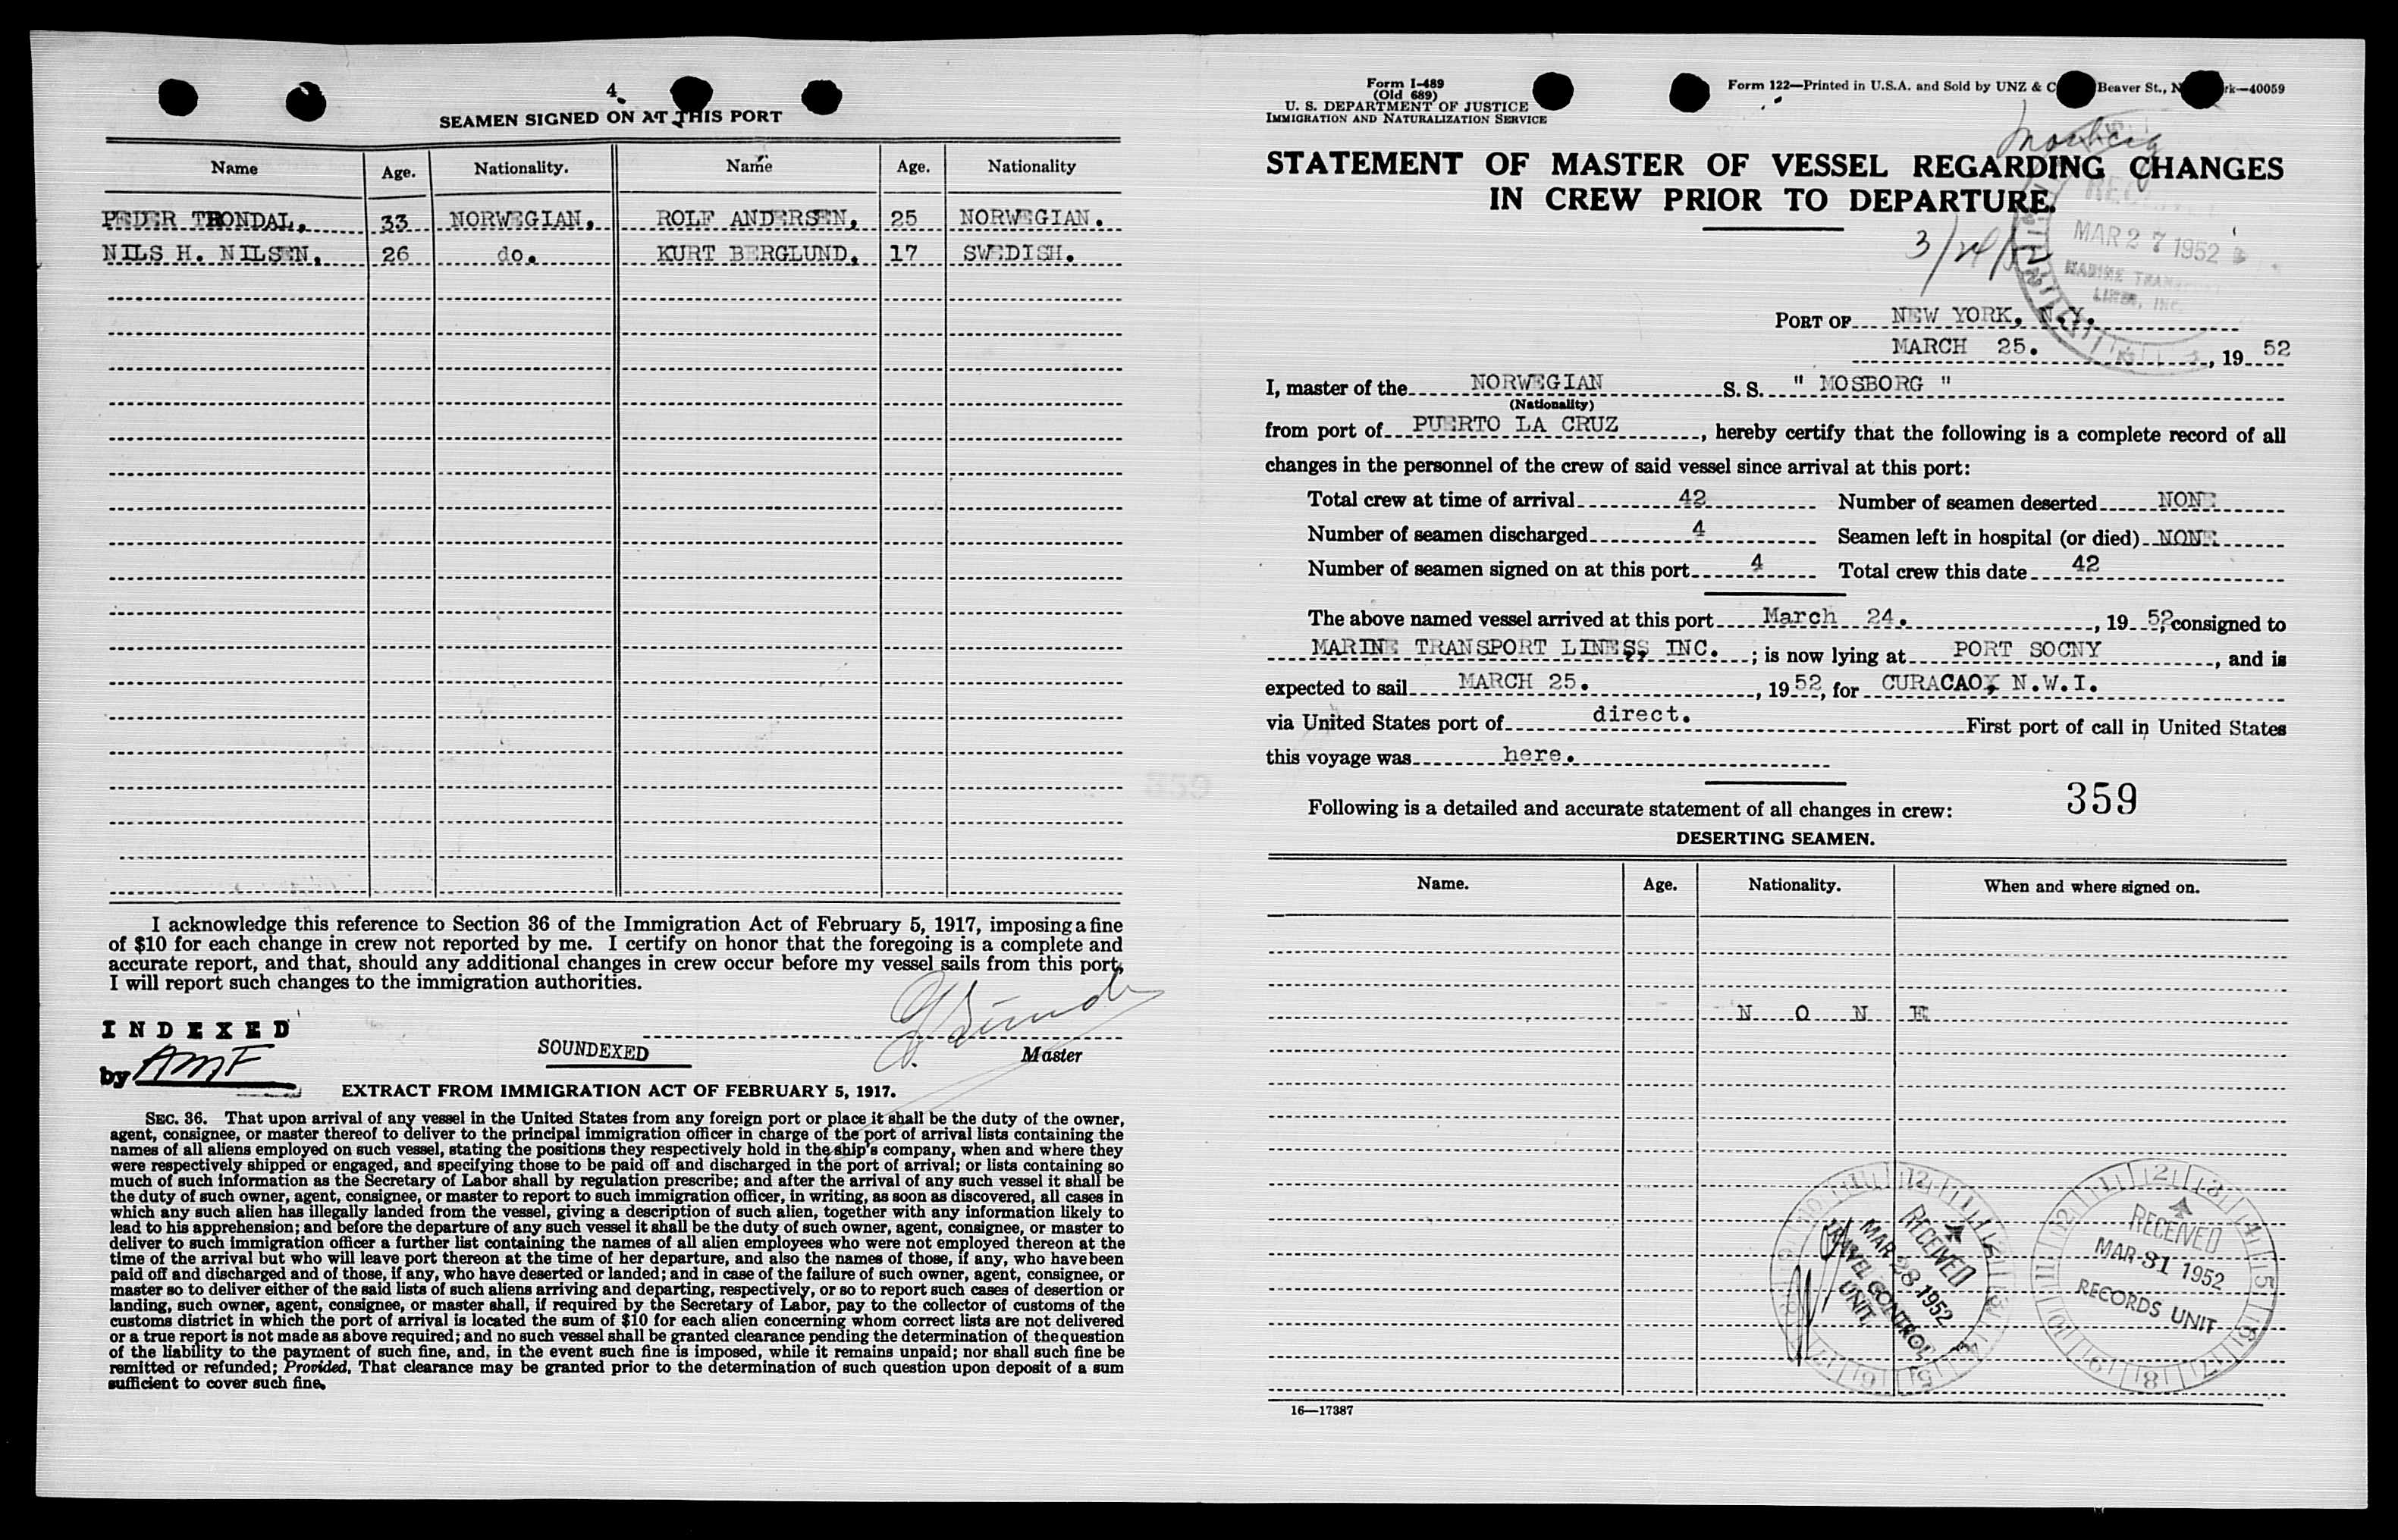 4
SEAMEN SIGNED ON AT THIS PORT
Name Age. Nationality. Name Age. Nationality
PEDER TRONDAL, 33 NORWEGIAN, ROLF ANDERSEN, 25 NORWEGIAN.
NILS H. NILSEN, 26 do. KURT BERGLUND, 17 SWEDISH.
I acknowledge this reference to Section 36 of the Immigration Act of February 5, 1917, imposing a fine
of $10 for each change in crew not reported by me. I certify on honor that the foregoing is a complete and
accurate report, and that, should any additional changes in crew occur before my vessel sails from this port,
I will report such changes to the immigration authorities.
INDEXED
by AMF
SOUNDEXED
Master
EXTRACT FROM IMMIGRATION ACT OF FEBRUARY 5, 1917.
SEC. 36. That upon arrival of any vessel in the United States from any foreign port or place it shall be the duty of the owner,
agent, consignee, or master thereof to deliver to the principal immigration officer in charge of the port of arrival lists containing the
names of all aliens employed on such vessel, stating the positions they respectively hold in the ship's company, when and where they
were respectively shipped or engaged, and specifying those to be paid off and discharged in the port of arrival; or lists containing so
much of such information as the Secretary of Labor shall by regulation prescribe; and after the arrival of any such vessel it shall be
the duty of such owner, agent, consignee, or master to report to such immigration officer, in writing, as soon as discovered, all cases in
which any such alien has illegally landed from the vessel, giving a description of such alien, together with any information likely to
lead to his apprehension; and before the departure of any such vessel it shall be the duty of such owner, agent, consignee, or master to
deliver to such immigration officer a further list containing the names of all alien employees who were not employed thereon at the
time of the arrival but who will leave port thereon at the time of her departure, and also the names of those, if any, who have been
paid off and discharged and of those, if any, who have deserted or landed; and in case of the failure of such owner, agent, consignee, or
master so to deliver either of the said lists of such aliens arriving and departing, respectively, or so to report such cases of desertion or
landing, such owner, agent, consignee, or master shall, if required by the Secretary of Labor, pay to the collector of customs of the
customs district in which the port of arrival is located the sum of $10 for each alien concerning whom correct lists are not delivered
or a true report is not made as above required; and no such vessel shall be granted clearance pending the determination of the question
of the liability to the payment of such fine, and, in the event such fine is imposed, while it remains unpaid; nor shall such fine be
remitted or refunded; Provided, That clearance may be granted prior to the determination of such question upon deposit of a sum
sufficient to cover such fine.
Form I-489
(Old 689)
U. S. DEPARTMENT OF JUSTICE
IMMIGRATION AND NATURALIZATION SERVICE
Form 122—Printed in U.S.A. and Sold by UNZ & C Beaver St., N rk—40059
STATEMENT OF MASTER OF VESSEL REGARDING CHANGES
IN CREW PRIOR TO DEPARTURE.
MAR 27 1952
MARINE TRANSPORT
LINES, INC.
PORT OF NEW YORK, N.Y.
MARCH 25. , 19 52
I, master of the NORWEGIAN S. S. " MOSBORG "
(Nationality)
from port of PUERTO LA CRUZ , hereby certify that the following is a complete record of all
changes in the personnel of the crew of said vessel since arrival at this port:
Total crew at time of arrival 42 Number of seamen deserted NONE
Number of seamen discharged 4 Seamen left in hospital (or died) NONE
Number of seamen signed on at this port 4 Total crew this date 42
The above named vessel arrived at this port March 24. , 19 52, consigned to
MARINE TRANSPORT LINES, INC. ; is now lying at PORT SOCNY , and is
expected to sail MARCH 25. , 19 52, for CURACAO, N.W.I.
via United States port of direct. First port of call in United States
this voyage was here.
359
Following is a detailed and accurate statement of all changes in crew:
DESERTING SEAMEN.
Name. Age. Nationality. When and where signed on.
N O N E
RECEIVED
MAR 28 1952
TRAVEL CONTROL
UNIT
RECEIVED
MAR 31 1952
RECORDS UNIT
16—17387